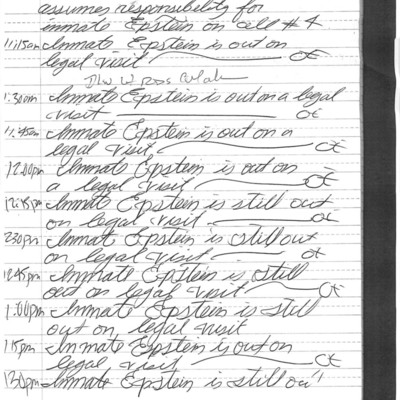 assumes responsibility for
inmate Epstein on cell #4
11:15am Inmate Epstein is out on
legal visit OE
1:30am Inmate Epstein is out on a legal
visit OE
11:45am Inmate Epstein is out on a
legal visit. OE
12:00pm Inmate Epstein is out on
a legal visit OE
12:15pm Inmate Epstein is still out
on legal visit OE
230pm Inmate Epstein is still out
on legal visit OE
12:45pm Inmate Epstein is still
out on legal visit OE
1:00pm Inmate Epstein is still
out on legal visit
115pm Inmate Epstein is out on
legal visit OE
130pm Inmate Epstein is still out